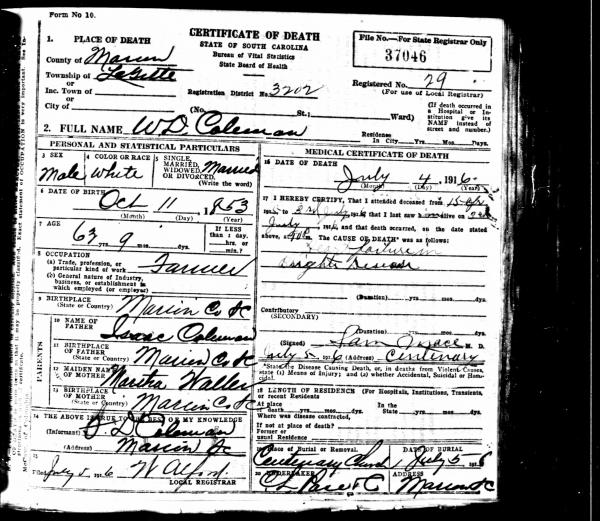 Form No 10.
CERTIFICATE OF DEATH
STATE OF SOUTH CAROLINA
Bureau of Vital Statistics
State Board of Health
File No.—For State Registrar Only
37046
1. PLACE OF DEATH
County of Marion
Township of
or
Inc. Town of
or
City of
Registration District No. 3202
Registered No. 29
(For use of Local Registrar)
(No. St.; Ward)
(If death occurred in a Hospital or Institution give its NAME instead of street and number.)
2. FULL NAME W. D. Coleman
Residence In City Yrs. Mos. Days.
PERSONAL AND STATISTICAL PARTICULARS
3 SEX
Male
4 COLOR OR RACE
White
5 SINGLE, MARRIED, WIDOWED, OR DIVORCED.
(Write the word)
Married
6 DATE OF BIRTH
Oct 11 1853
(Month) (Day) (Year)
7 AGE
63 yrs. 9 mos. ds.
If LESS than 1 day, hrs. or min.?
8 OCCUPATION
(a) Trade, profession, or particular kind of work
Farmer
(b) General nature of Industry, business, or establishment in which employed (or employer)
9 BIRTHPLACE
(State or Country)
Marion Co SC
PARENTS
10 NAME OF FATHER
Isaac Coleman
11 BIRTHPLACE OF FATHER
(State or Country)
Marion Co SC
12 MAIDEN NAME OF MOTHER
Martha Waller
13 BIRTHPLACE OF MOTHER
(State or Country)
Marion Co SC
14 THE ABOVE IS TRUE TO THE BEST OF MY KNOWLEDGE
(Informant) D Coleman
(Address) Marion SC
15
Filed July 5 1916 W Alford
LOCAL REGISTRAR
MEDICAL CERTIFICATE OF DEATH
16 DATE OF DEATH
July 4, 1916
(Month) (Day) (Year)
17 I HEREBY CERTIFY, That I attended deceased from 15
that I last saw h alive on
July and that death occurred, on the date stated above,
The CAUSE OF DEATH* was as follows:
Brights Disease
(Duration) yrs. mos. ds.
Contributory
(SECONDARY)
(Duration) yrs. mos. ds.
(Signed) Sam M. D.
July 5 1916 (Address) Centenary
*State the Disease Causing Death, or, in deaths from Violent Causes, state (1) Means of Injury; and (2) whether Accidental, Suicidal or Homicidal.
18 LENGTH OF RESIDENCE (For Hospitals, Institutions, Transients, or recent Residents
At place of death yrs. mos. ds. In the State yrs. mos. ds.
Where was disease contracted,
If not at place of death?
Former or usual Residence
19 Place of Burial or Removal.
Centenary Church
DATE OF BURIAL
July 5 1916
20 UNDERTAKER
ADDRESS
Marion SC